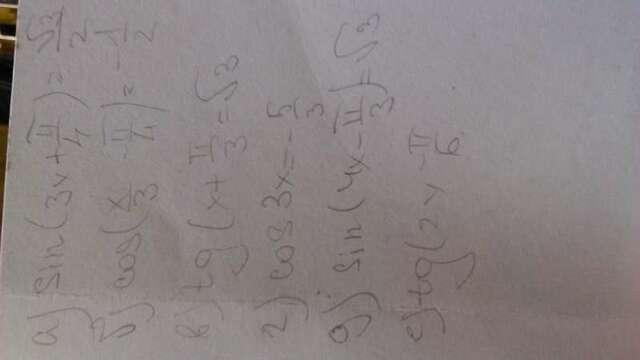 а) sin(3x+π/4)=√2/2
б) cos(x/3-π/4)=-1/2
в) tg(x+π/3=√3
г) cos3x=-5/3
д) sin(4x-π/3)=√3
е) tg(2x-π/6